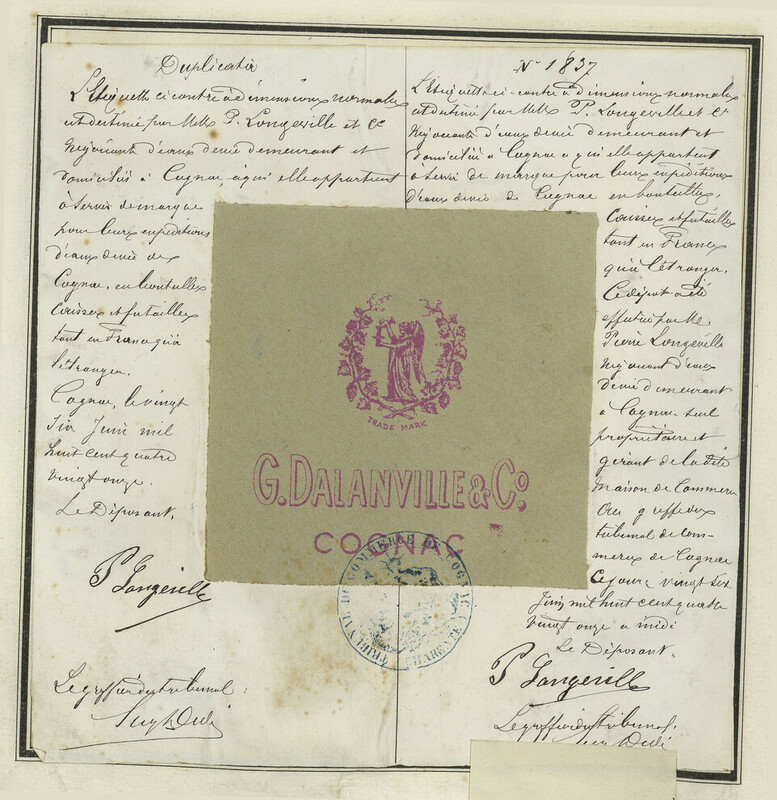 Duplicata
L'Etiquette ci contre à dimensions normales
est destiné par Mells P. Longeville et Cie
Négociants d'eaux de vie demeurant et
domiciliés à Cognac, à qui elle appartient
à servir de marque
pour leurs expéditions
d'eaux de vie de
Cognac, en bouteilles
caisses et futailles
tant en France qu'à
l'étranger.
Cognac, le vingt
six Juin mil
huit cent quatre
vingt onze.
Le Déposant,
P. Longeville
Le greffier du tribunal:
N° 1837
L'Etiquette ci-contre à dimensions normales
est destiné par Mells P. Longeville et Cie
Négociants d'eaux de vie demeurant et
domiciliés à Cognac à qui elle appartient
à servir de marque pour leurs expéditions
d'eaux de vie de Cognac en bouteilles,
caisses et futailles
tant en France
qu'à l'étranger.
Ce dépôt a été
effectué par Me.
Pierre Longeville
Négociant d'eaux
de vie demeurant
à Cognac seul
propriétaire et
gérant de la dite
maison de Commerce
au greffe du
tribunal de com-
merce de Cognac
Ce jour vingt six
Juin mil huit cent quatre
vingt onze à midi
Le Déposant.
P. Longeville
Le greffier du tribunal.
TRADE MARK
G. DALANVILLE & Co
COGNAC
TRIBUNAL DE COMMERCE DE COGNAC
CHARENTE